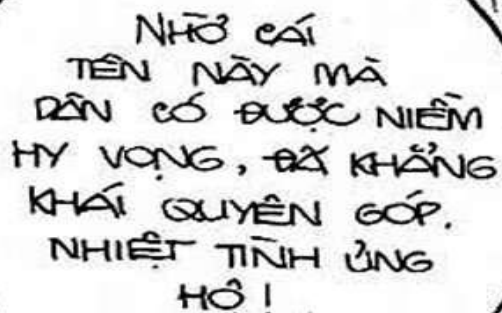 NHỜ CÁI
TÊN NÀY MÀ
DÂN CÓ ĐƯỢC NIỀM
HY VỌNG, ĐÃ KHẢNG
KHÁI QUYÊN GÓP.
NHIỆT TÌNH ỦNG
HÔ!